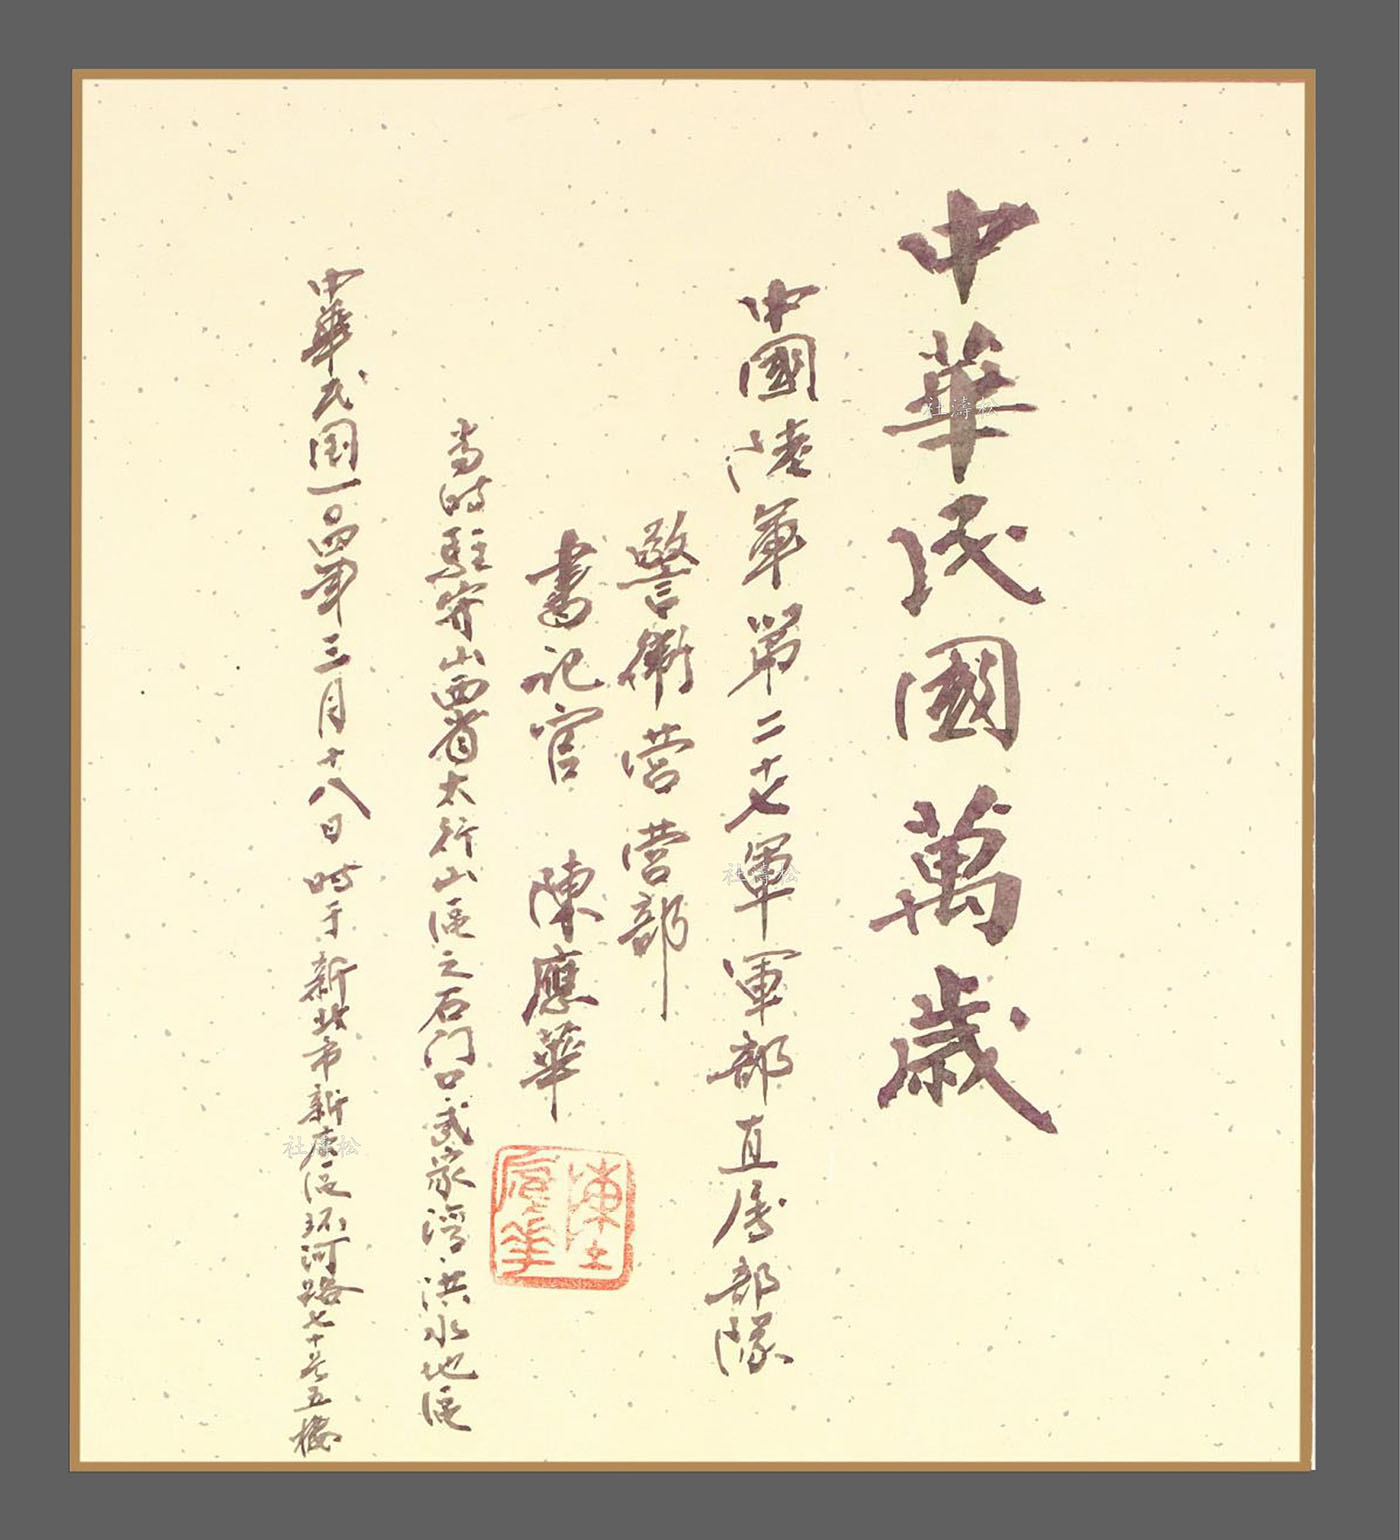 中華民國萬歲
中國陸軍第二十七軍軍部直屬部隊
警衛营营部
書記官 陳應華
当時駐守山西省太行山區之石门口武家湾洪水地區
中華民国一〇四年三月十八日時于新北市新店區环河路七十号五樓
陳應華
杜濤松
杜濤松
杜濤松